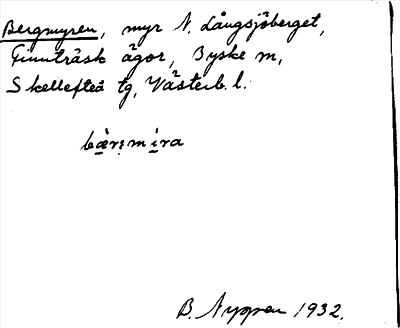 Bergmyren, myr N. Långsjöberget,
Finnträsk ägor, Byske m,
Skellefteå tg, Västerb. l.
bæ̀rı̣mı̀ra
B. Nygren 1932.